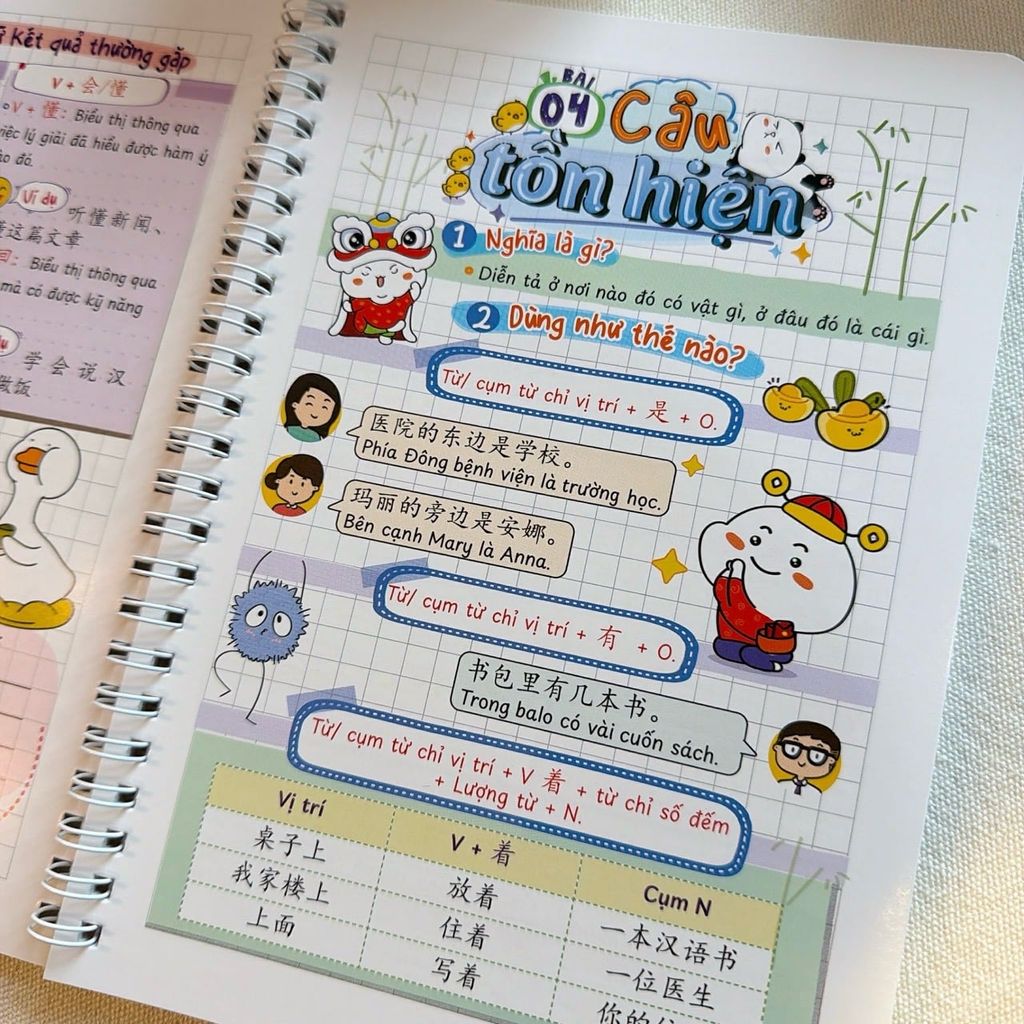 Kết quả thường gặp
V + 会/懂
V + 懂: Biểu thị thông qua
việc lý giải đã hiểu được hàm ý
đó.
Ví dụ
听懂新闻、
这篇文章
Biểu thị thông qua
mà có được kỹ năng
学会说汉
做饭
BÀI
04
Câu
tồn hiện
1 Nghĩa là gì?
Diễn tả ở nơi nào đó có vật gì, ở đâu đó là cái gì.
2 Dùng như thế nào?
Từ/ cụm từ chỉ vị trí + 是 + O.
医院的东边是学校。
Phía Đông bệnh viện là trường học.
玛丽的旁边是安娜。
Bên cạnh Mary là Anna.
Từ/ cụm từ chỉ vị trí + 有 + O.
书包里有几本书。
Trong balo có vài cuốn sách.
Từ/ cụm từ chỉ vị trí + V 着 + từ chỉ số đếm
+ Lượng từ + N.
Vị trí
V + 着
Cụm N
桌子上
放着
一本汉语书
我家楼上
住着
一位医生
上面
写着
你的